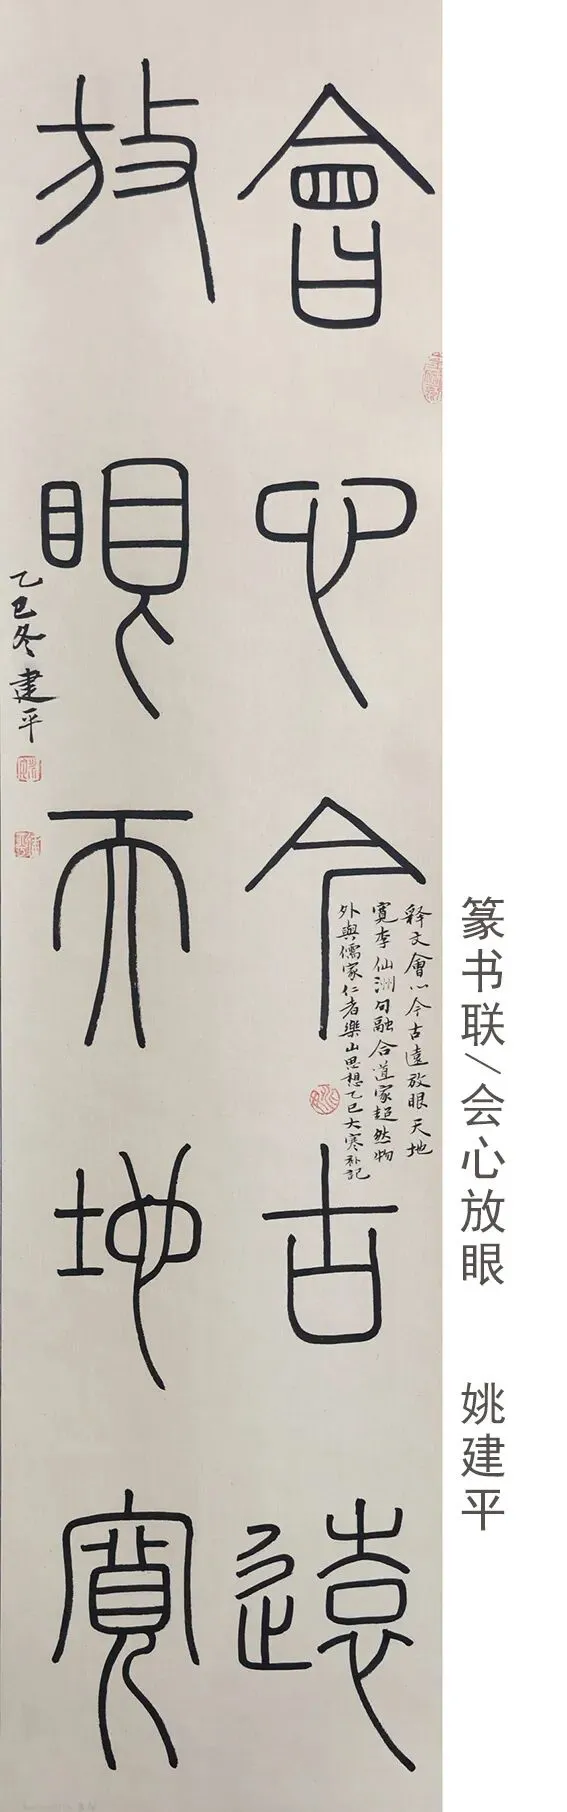 會心今古遠
释文會心今古遠放眼天地
寬李仙洲句融合道家超然物
外與儒家仁者樂山思想乙巳大寒补記
放眼天地寬
乙巳冬建平
篆书联/会心放眼 姚建平